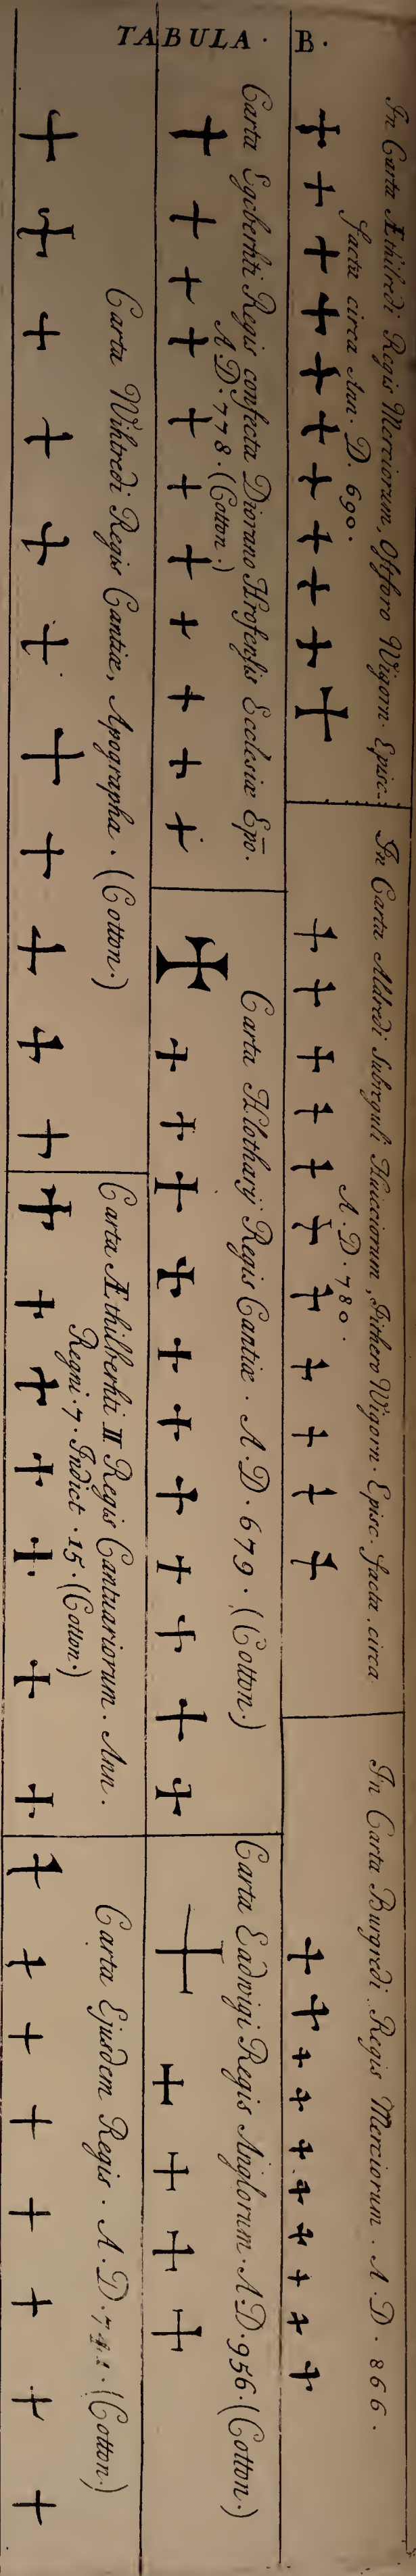 TABULA · B ·
In Carta Æthilredi Regis Merciorum, Oftforo Wigorn. Episc.
facta circa Ann. D. 690.
In Carta Aldredi Subreguli Huicciorum, Wigorn. Episc. facta circa
A. D. 780.
In Carta Burgredi Regis Merciorum. A. D. 866.
Carta Egberhti Regis confecta Diorano Hrofensis Ecclesiæ Epō.
A. D. 778. (Cotton.)
Carta Hlotharij Regis Cantiæ. A. D. 679. (Cotton.)
Carta Eadwigi Regis Anglorum. A. D. 956. (Cotton.)
Carta Wihtredi Regis Cantiæ, Apographa. (Cotton.)
Carta Æthilberhti II Regis Cantuariorum. Ann.
Regni. 7. Indict. 15. (Cotton.)
Carta Ejusdem Regis. A. D. (Cotton.)